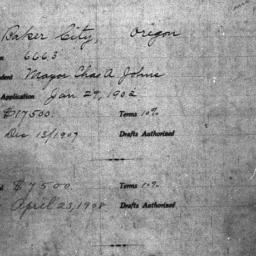 Baker City, Oregon
6663
dent Mayor Chas A. Johns
Application Jan 29, 1902
$17500. Terms 10%
Dec 13/1907 Drafts Authorized
$7500 Terms 10%
April 23, 1908 Drafts Authorized